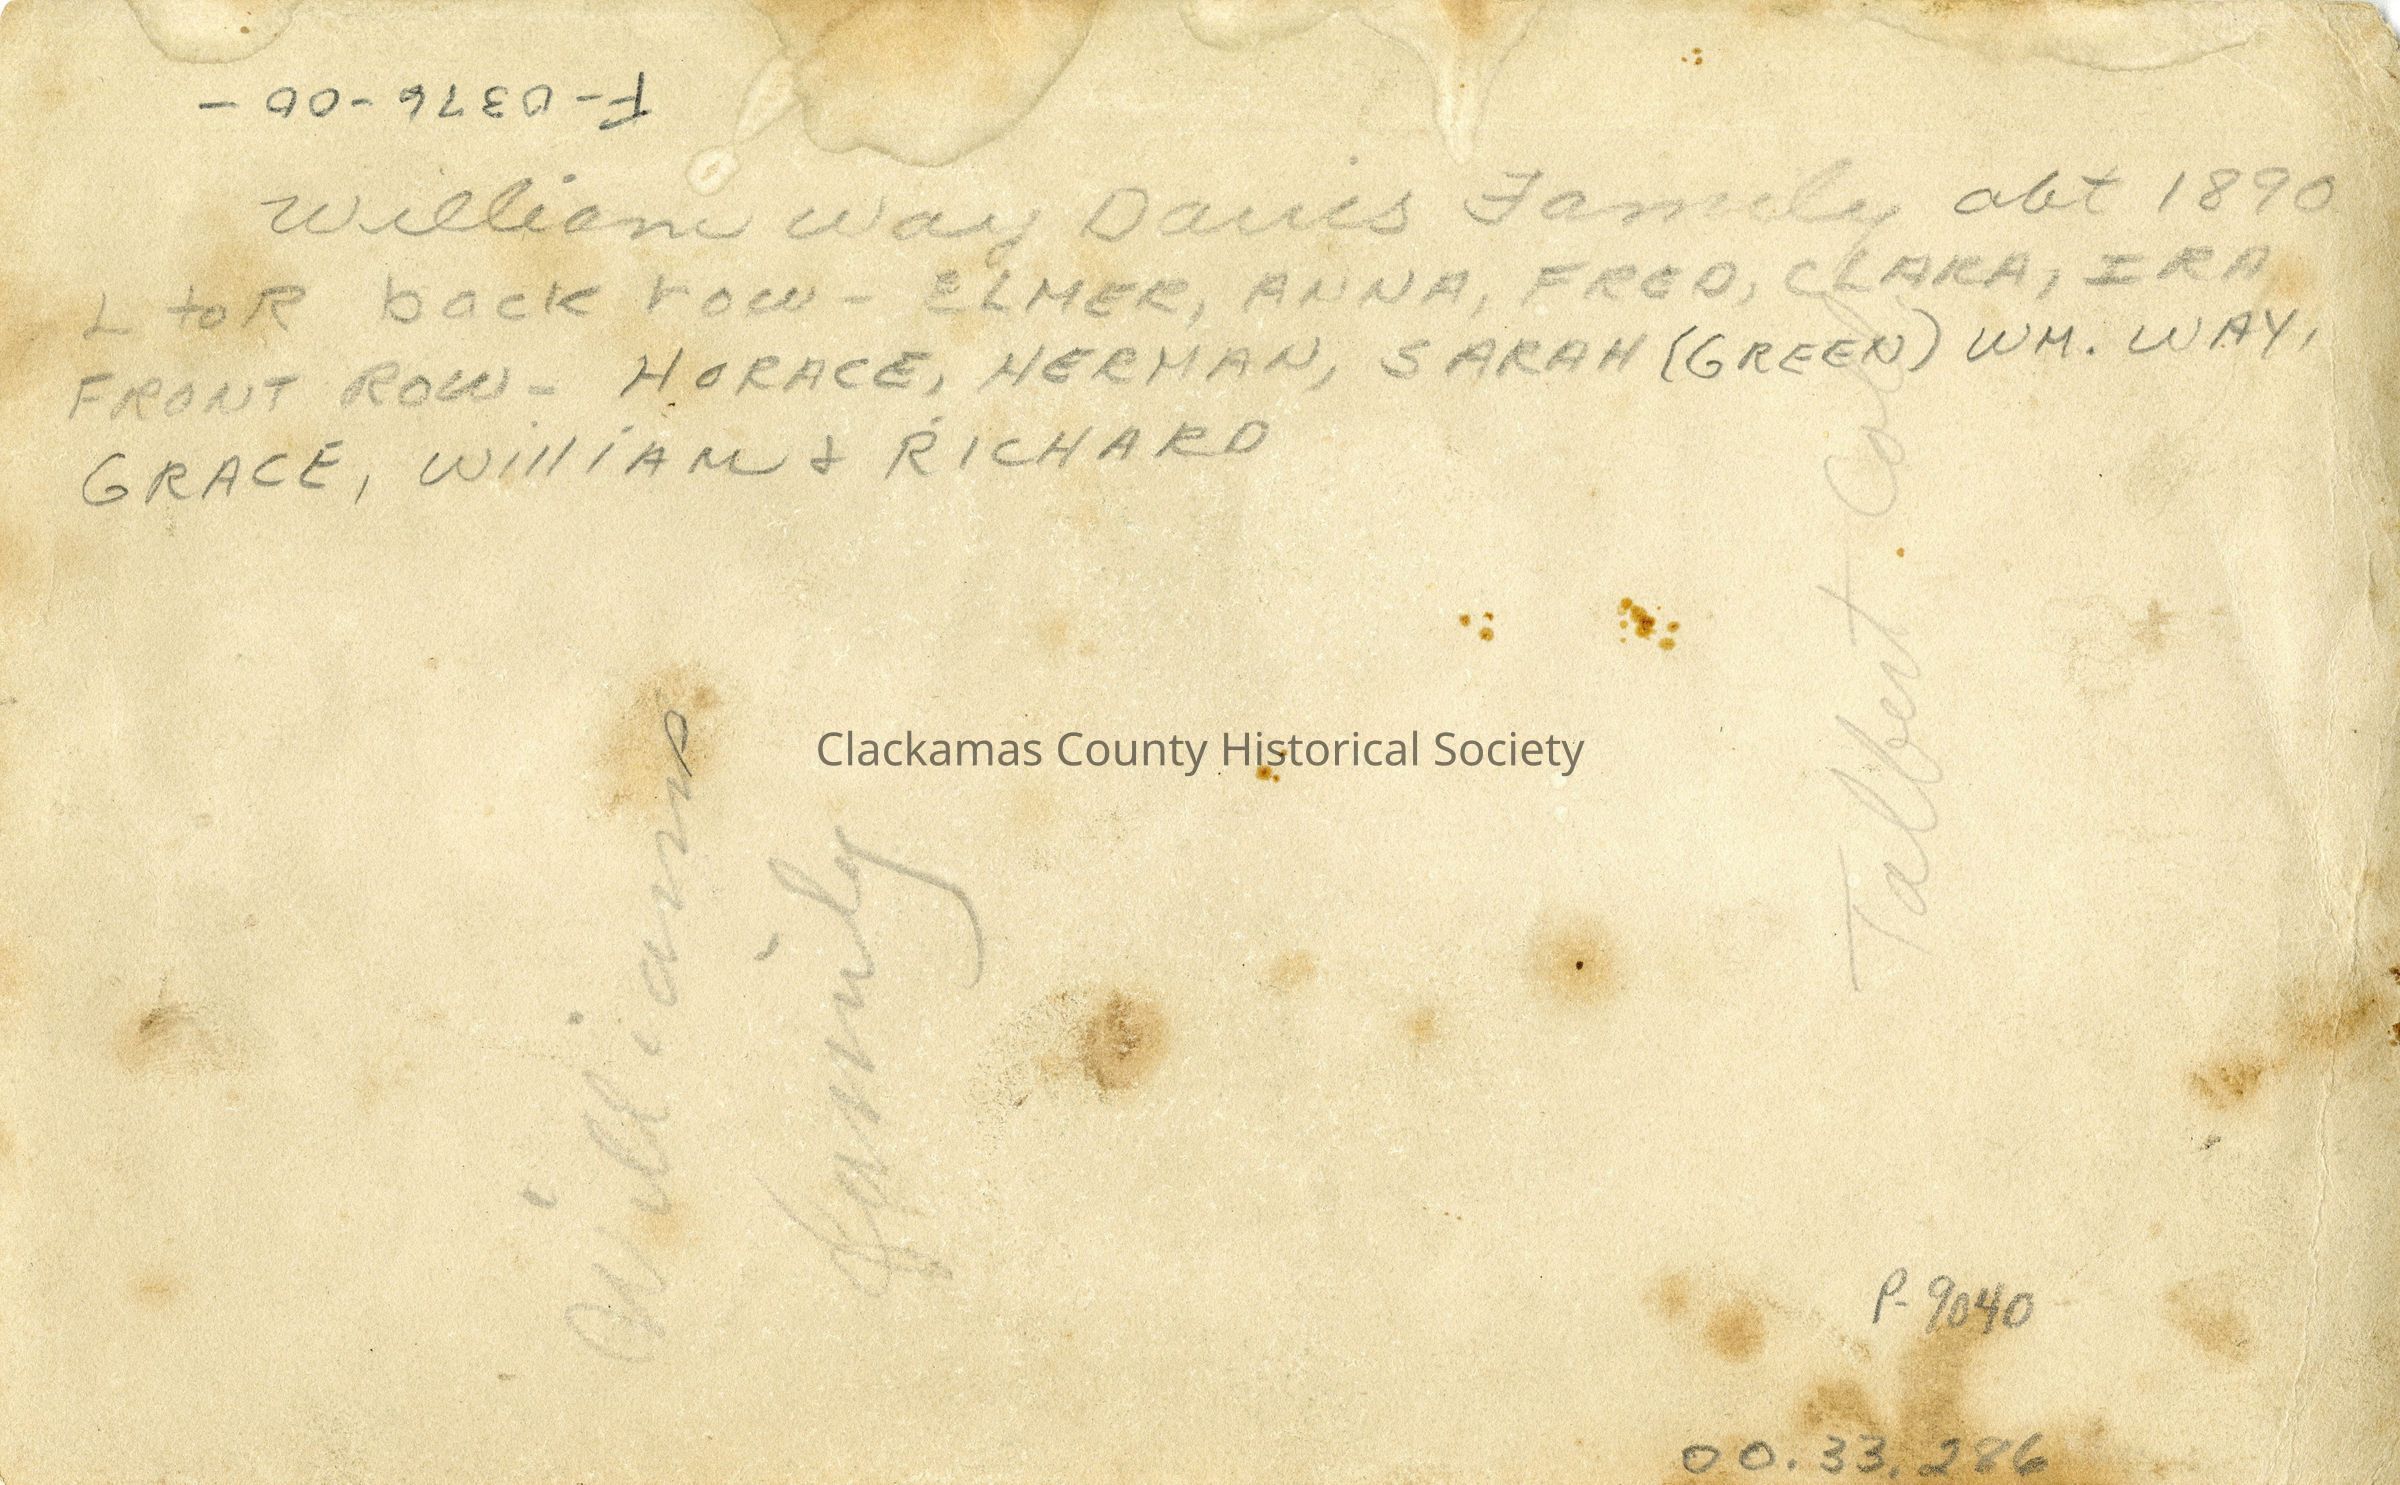 F-0376-00-
William Way Davis Family abt 1890
L to R back row - ELMER, ANNA, FRED, CLARA, IRA
FRONT ROW - HORACE, HERMAN, SARAH (GREEN) WM. WAY,
GRACE, William & RICHARD
Talbert Coll
Clackamas County Historical Society
Williams
family
P-9040
00.33.286